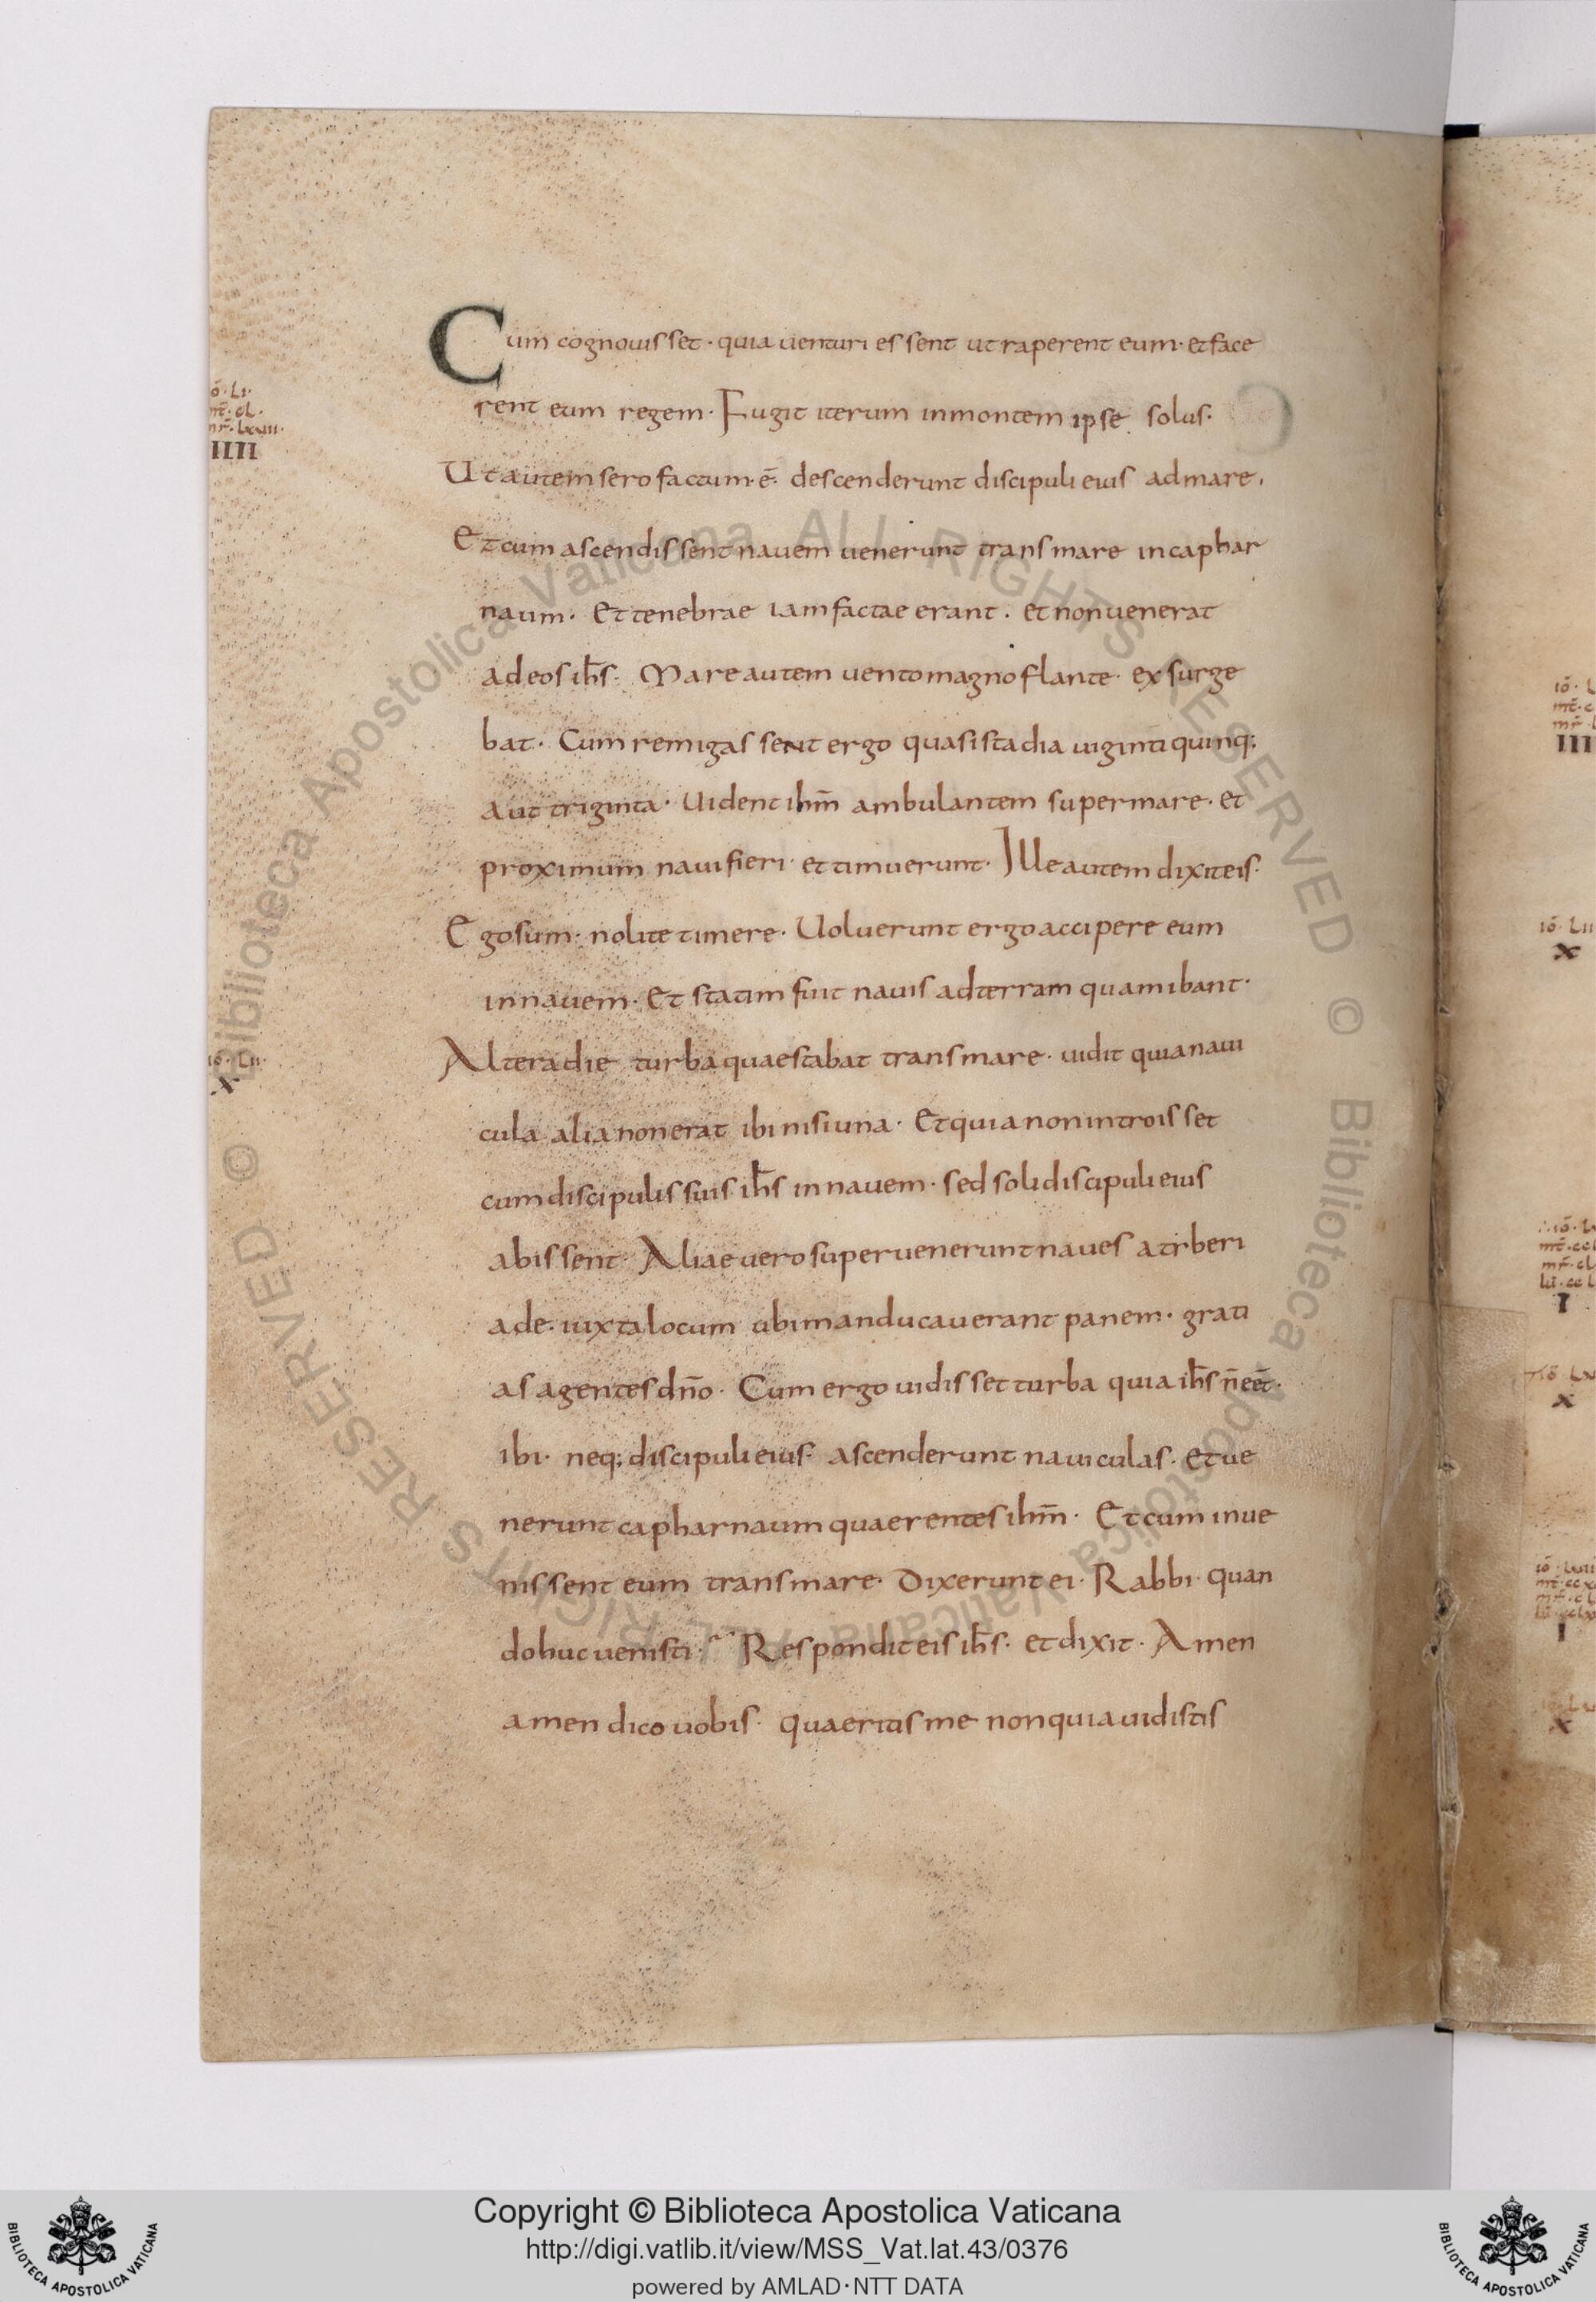 Cum cognouisset · quia uenturi essent ut raperent eum · et face
rent eum regem · Fugit iterum inmontem ipse solus ·
Ut autem sero factum · ē · descenderunt discipuli eius ad mare ·
Et cum ascendissent nauem uenerunt trans mare in caphar
naum · Et tenebrae iam factae erant · et non uenerat
ad eos ih̄s · Mare autem uento magno flante · exsurge
bat · Cum remigassent ergo quasi stadia uiginti quinq;
aut triginta · Uident ihm̄ ambulantem super mare · et
proximum naui fieri · et timuerunt · Ille autem dixit eis ·
Ego sum · nolite timere · Uoluerunt ergo accipere eum
in nauem · Et statim fuit nauis ad terram quam ibant ·
Altera die turba quae stabat trans mare · uidit quia naui
cula alia non erat ibi nisi una · Et quia non introisset
cum discipulis suis ih̄s in nauem · sed soli discipuli eius
abissent · Aliae uero superuenerunt naues a tiberi
ade · iuxta locum ubi manducauerant panem · grati
as agentes dn̄o · Cum ergo uidisset turba quia ih̄s n̄ eēt ·
ibi · neq; discipuli eius · ascenderunt nauiculas · et ue
nerunt capharnaum quaerentes ihm̄ · Et cum inue
nissent eum trans mare · Dixerunt ei · Rabbi · quan
do huc uenisti · Respondit eis ih̄s · et dixit · Amen
amen dico uobis · quaeritis me non quia uidistis
IIII
io · LII ·
X
Copyright © Biblioteca Apostolica Vaticana
http://digi.vatlib.it/view/MSS_Vat.lat.43/0376
powered by AMLAD·NTT DATA
BIBLIOTECA APOSTOLICA VATICANA
BIBLIOTECA APOSTOLICA VATICANA